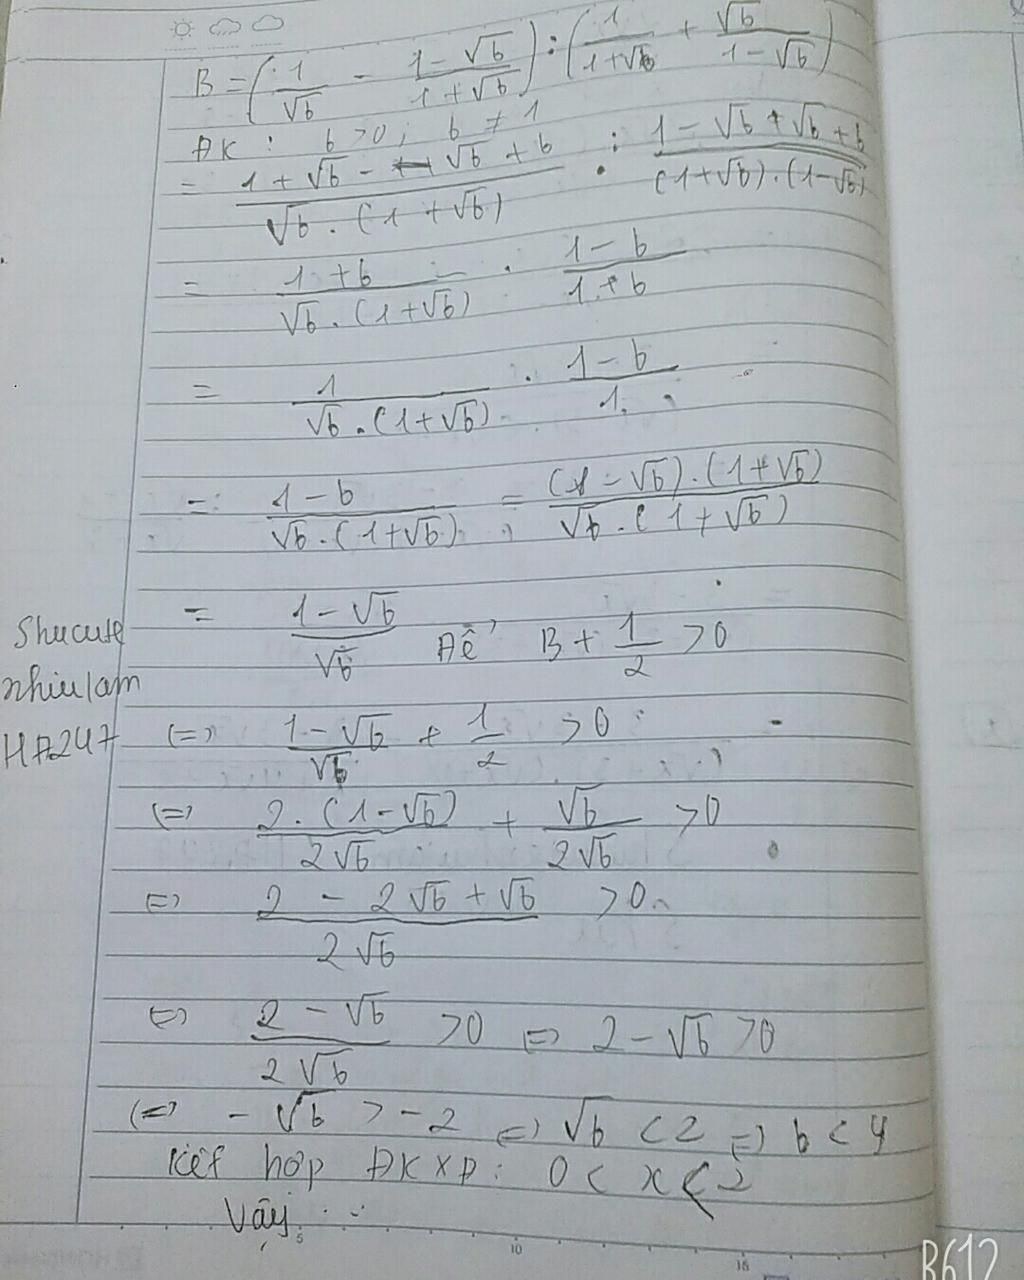 B = (1/√b - (1-√b)/(1+√b)) : (1/(1+√b) + √b/(1-√b))
ĐK : b > 0 ; b ≠ 1
= (1 + √b - √b + b)/(√b . (1 + √b)) : (1 - √b + √b + b)/((1+√b).(1-√b))
= (1 + b)/(√b . (1+√b)) . (1 - b)/(1 + b)
= 1/(√b . (1+√b)) . (1 - b)/1
= (1 - b)/(√b . (1+√b)) = ((1 - √b) . (1 + √b))/(√b . (1 + √b))
= (1 - √b)/√b Để B + 1/2 > 0
Shucute
nhiulam
HA247
(=) (1 - √b)/√b + 1/2 > 0
(=) (2 . (1 - √b))/(2√b) + √b/(2√b) > 0
(=) (2 - 2√b + √b)/(2√b) > 0
(=) (2 - √b)/(2√b) > 0 (=) 2 - √b > 0
(=) - √b > - 2 (=) √b < 2 (=) b < 4
Kết hợp ĐKXĐ : 0 < x < 2
Vậy ...
5 10 15
B612